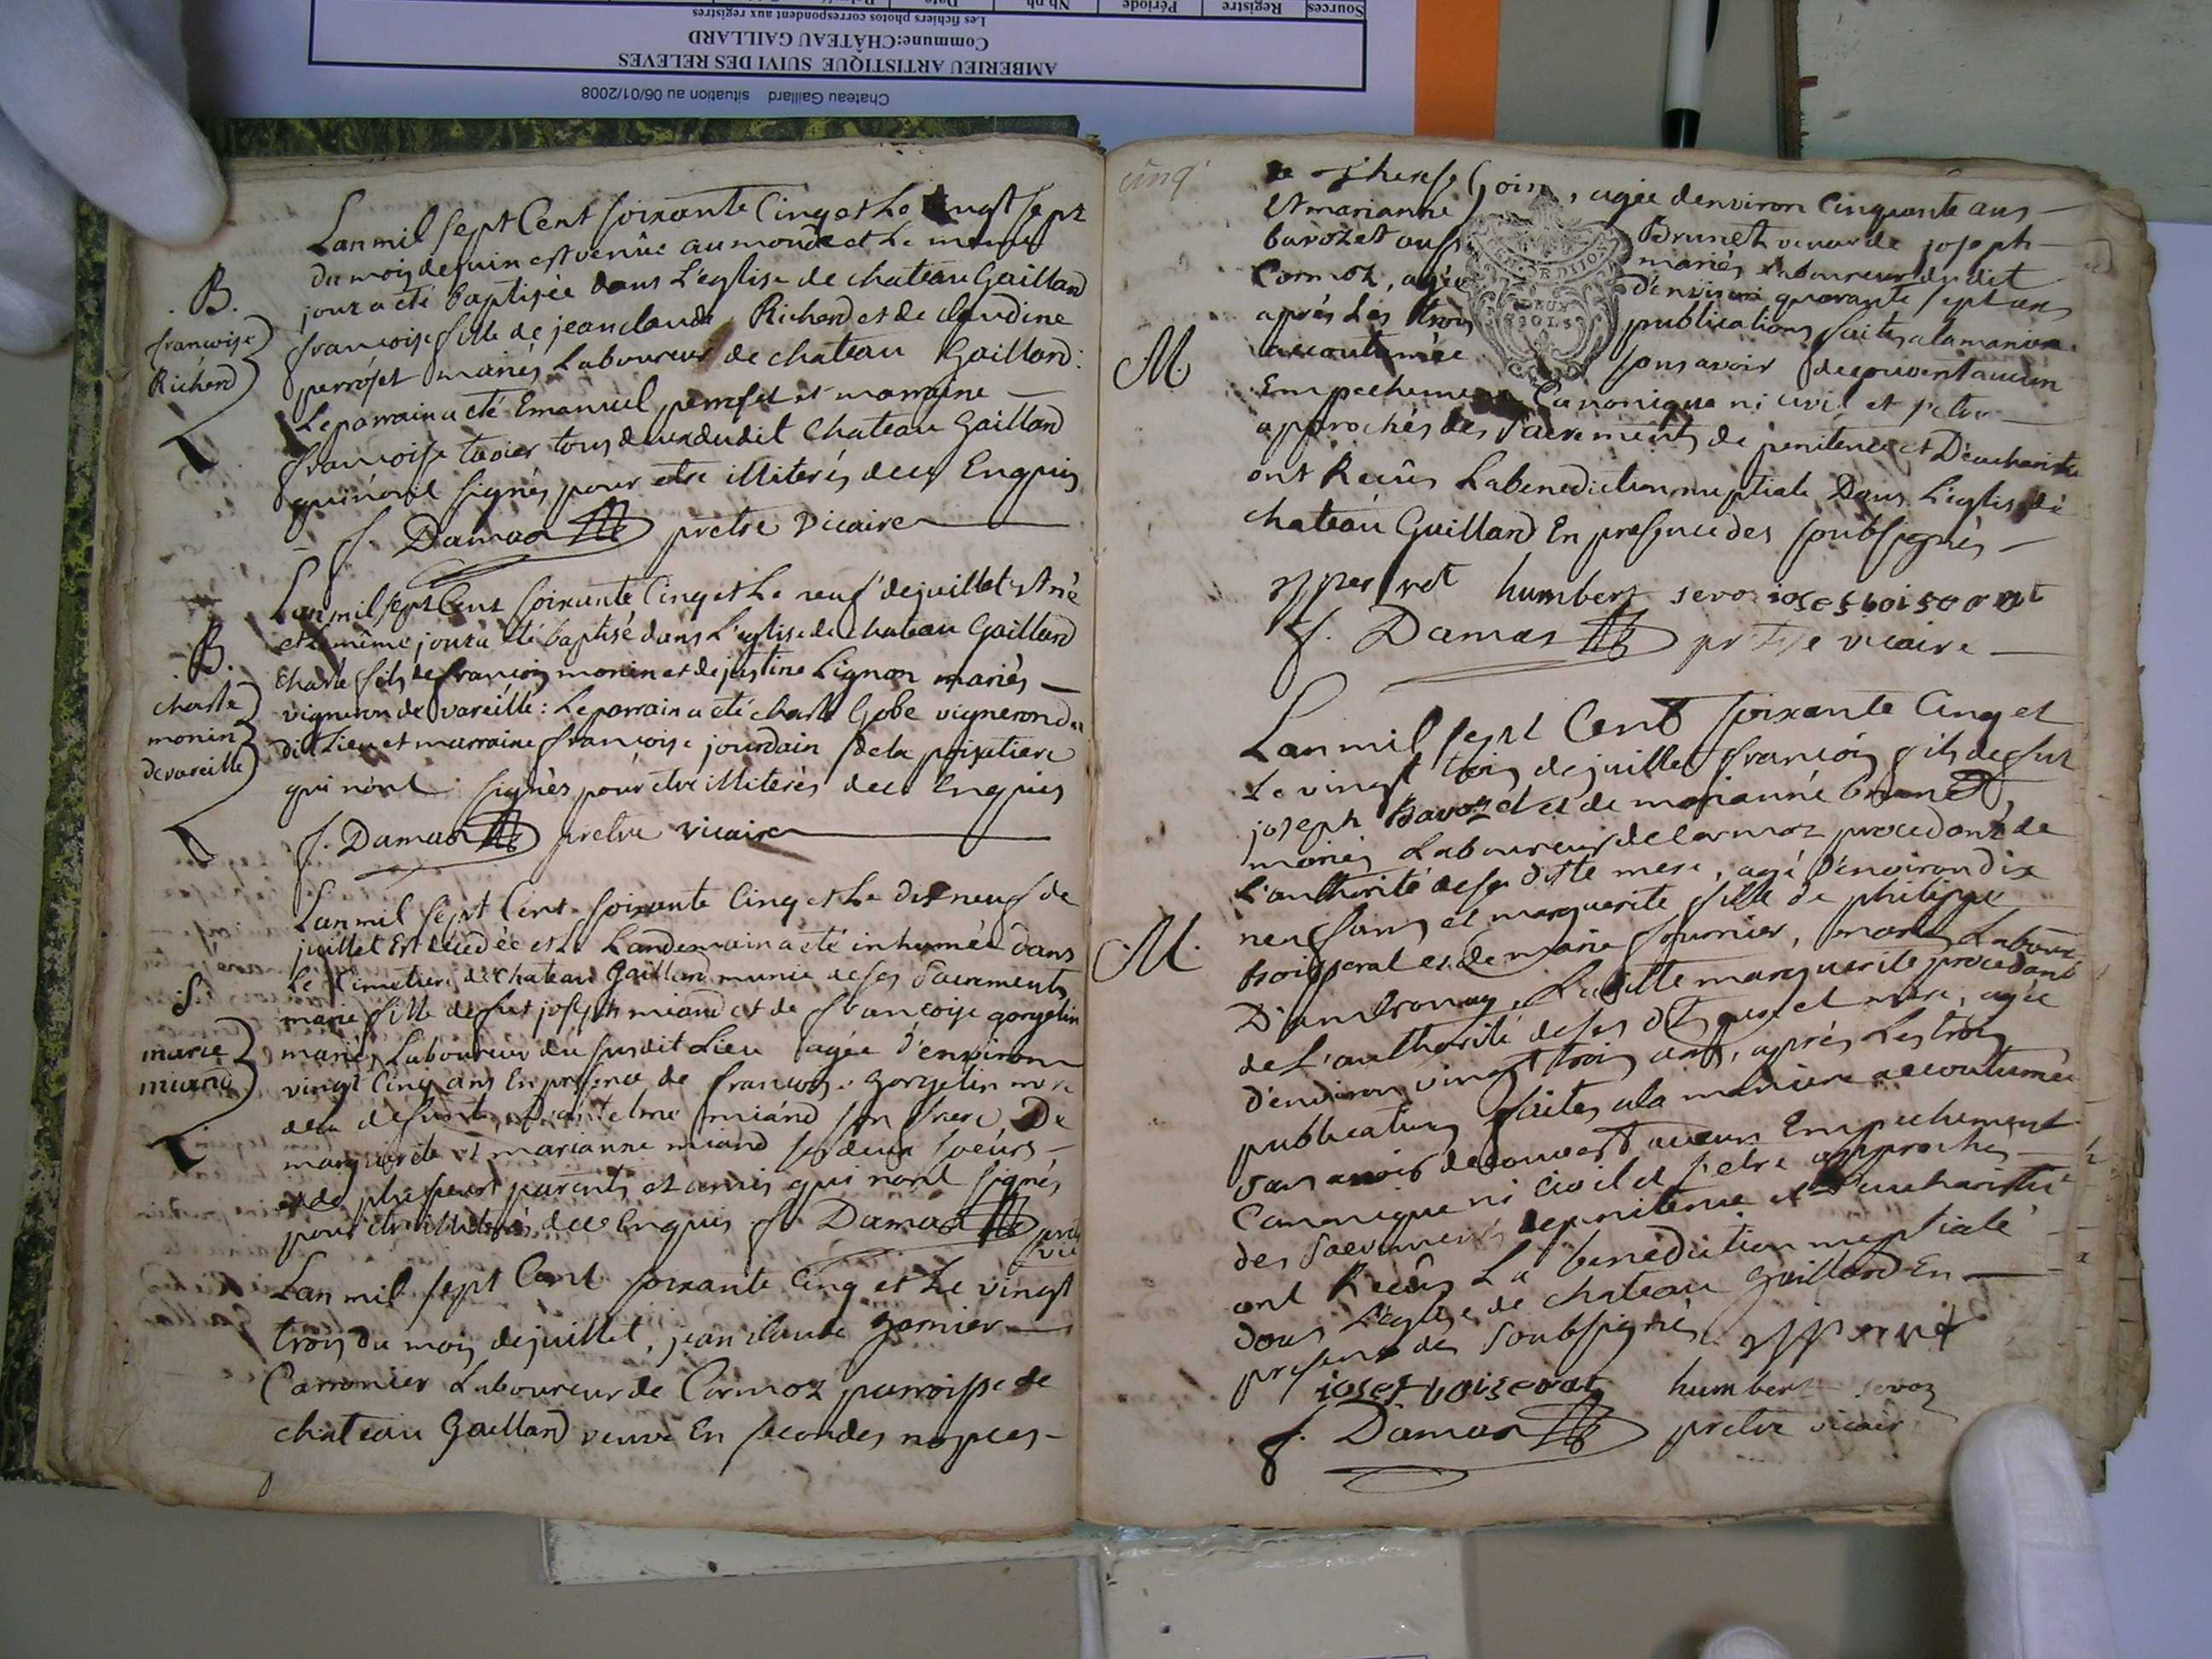 Chateau Gaillard situation au 06/01/2008
AMBERIEU ARTISTIQUE SUIVI DES RELEVES
Commune:CHÂTEAU GAILLARD
Les fichiers photos correspondent aux registres
Sources Registre Période Nb ph Date
Lan mil sept Cent soixante Cinq et Le vingt sept
du mois de juin est venüe au monde et Le meme
jour a eté baptisée dans L'eglise de chateau Gaillard
françoise fille de jean claude Richerd et de claudine
perroset mariés Laboureur de chateau Gaillard:
Le parrain a eté Emanuel perroset et marraine
françoise tavier tous deux dudit chateau Gaillard
qui n'ont signés pour etre illiterés dece Enquis
f. Damas pretre vicaire
B.
françoise
Richerd
Lan mil sept Cent soixante Cinq et Le neuf de juillet est né
et Le même jour a eté baptisé dans L'eglise de chateau Gaillard
Charle fils de françois monin et de justine Lignon mariés
vigneron de vareille: Le parrain a eté charle Gobe vigneron du
dit Lieu et marraine françoise jourdain de la
qui n'ont signés pour etre illiterés dece Enquis
f. Damas pretre vicaire
B.
charle
monin
de vareille
Lan mil sept Cent soixante Cinq et Le dix neuf de
juillet Est décedée et Le Landemain a eté inhumée dans
Le Cimetiere de chateau Gaillard munie de ses Sacrements
marie fille de fut joseph miand et de françoise gorgelin
mariés Laboureur du susdit Lieu agée d'environ
vingt Cinq ans En presence de françoise Gorgelin mere
dela defunte, miand son frere, De
marguerite et marianne miand ses deux soeurs
et de plusieurs parents et amis qui n'ont signés
pour etre illiterés dece Enquis f. Damas pretre
vic
S.
marie
miand
Lan mil sept Cent soixante Cinq et Le vingt
trois du mois de juillet, jean claude garnier
Carronier Laboureur de Cormoz parroisse de
chateau Gaillard veuve En secondes nopces
cinq
de therese Goin, agée denviron Cinquante ans
Et marianne Brunet veuve de joseph
bavozet aussi mariés Laboureur du dit
Cormoz, agée d'environ quarante sept ans
aprés Les trois publications faites ala maniere
accoutumée sans avoir decouvert aucun
Empechement Canonique ni civil et s'etre
approchés des Sacrements de penitence et D'eucharistie
ont Reçûs La benediction nuptiale Dans L'eglise de
chateau Guillard En presence des soubsignés
DEUX
SOLS
humbert sevoz iosef boiserat
f. Damas pretre vicaire
M.
Lan mil sept Cent soixante Cinq et
Le vingt trois de juillet françois fils de fut
joseph Bavozet et de marianne brunet,
mariés Laboureur de Cormoz procedant de
L'authorité de sa ditte mere, agé D'environ dix
neuf ans et marguerite fille de philippe
boisserat et de marie fournier, mariés Labour
D'ambronay. Laditte marguerite procedant
de L'authorité de ses dt pere et mere, agée
d'environ vingt trois ans, aprés Les trois
publications faites ala maniere accoutumée
sans avoir decouvert aucun Empechement
Canonique ni civil et s'etre approchés
des Sacrements de penitence et D'eucharistie
ont Reçûs La benediction nuptiale
dans L'eglise de chateau Gaillard En
presence des soubsignés
iosef boiserat humbert sevoz
f. Damas pretre vicair
M.